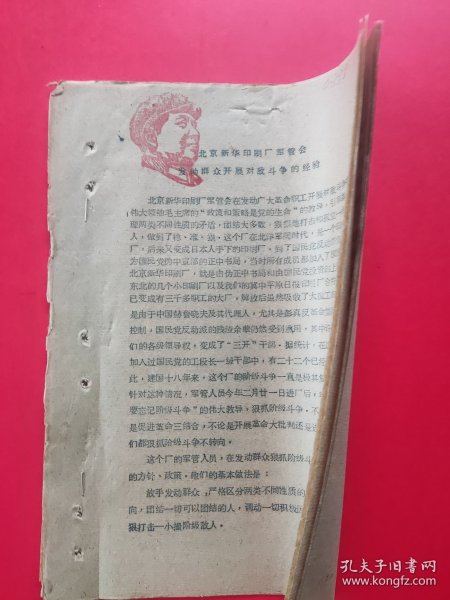 北京新华印刷厂军管会
发动群众开展对敌斗争的经验
北京新华印刷厂军管会在发动广大革命职工开展对敌斗争
伟大领袖毛主席的“政策和策略是党的生命”的教导,
理两类不同性质的矛盾,团结大多数,
人,做到了稳、准、狠。这个厂在北洋军阀时代,是一个
厂,后来又变成日本人手下的印刷厂。到了国民党反动
为国民党伪中宣部的正中书局,当时所有成员都加入了国
北京新华印刷厂,就是由伪正中书局和由国民党投资的上
东北的几个小印刷厂以及我们的冀中平原日报印刷厂合
已变成有三千多职工的大厂,解放后虽然吸收了大
是由于中国赫鲁晓夫及其代理人,尤其是彭真反革命
控制,国民党反动派的残渣余孽仍然受到重用,其中
们的各级领导权,变成了“三开”干部。据统计,在
加入过国民党的工段长一级干部中,有二十二个已
此,建国十八年来,这个厂的阶级斗争一直是极其
针对这种情况,军管人员今年二月廿一日进厂后,
要忘记阶级斗争”的伟大教导,狠抓阶级斗争。不
是促进革命三结合,不论是开展革命大批判还是
们都狠抓阶级斗争不转向。
这个厂的军管人员,在发动群众狠抓阶级斗
的方针、政策。他们的基本做法是:
放手发动群众,严格区分两类不同性质的
向,团结一切可以团结的人,调动一切积极
狠打击一小撮阶级敌人。
孔夫子旧书网